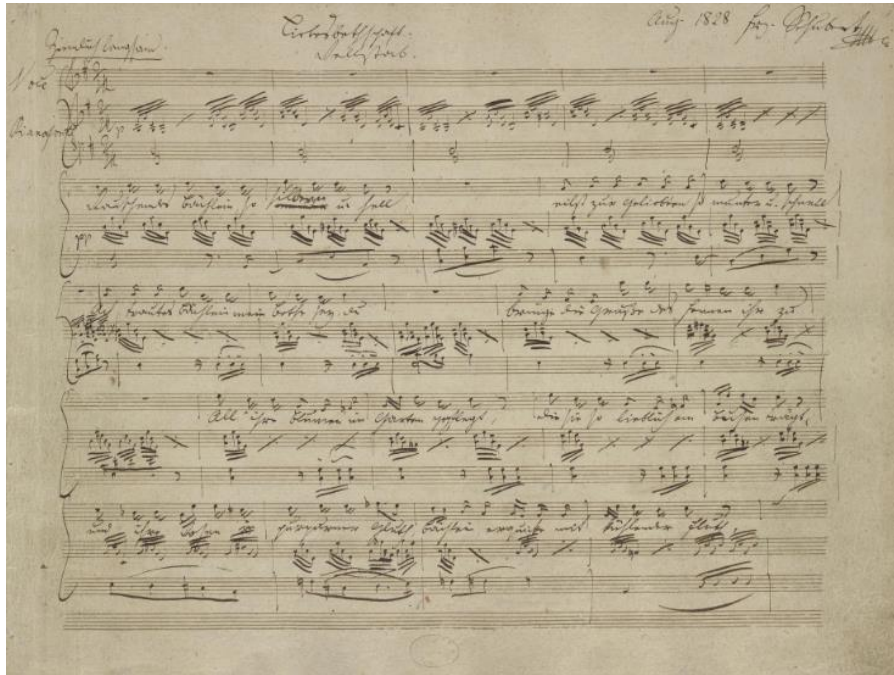 Liebesbothschaft.
Aug. 1828 Frz. Schubert
Ziemlich langsam.
Rellstab.
Voce
Pianoforte
pp
Rauschendes Bächlein so silbern u. hell eilst zur Geliebten so munter u. schnell
trautes Bächlein mein Bothe sey du bringe die Grüße des Fernen ihr zu
All' ihre Blumen im Garten gepflegt, die sie so lieblich am Busen trägt,
und ihre Rosen in purpurner Gluth Bächlein erquicke mit kühlender Fluth